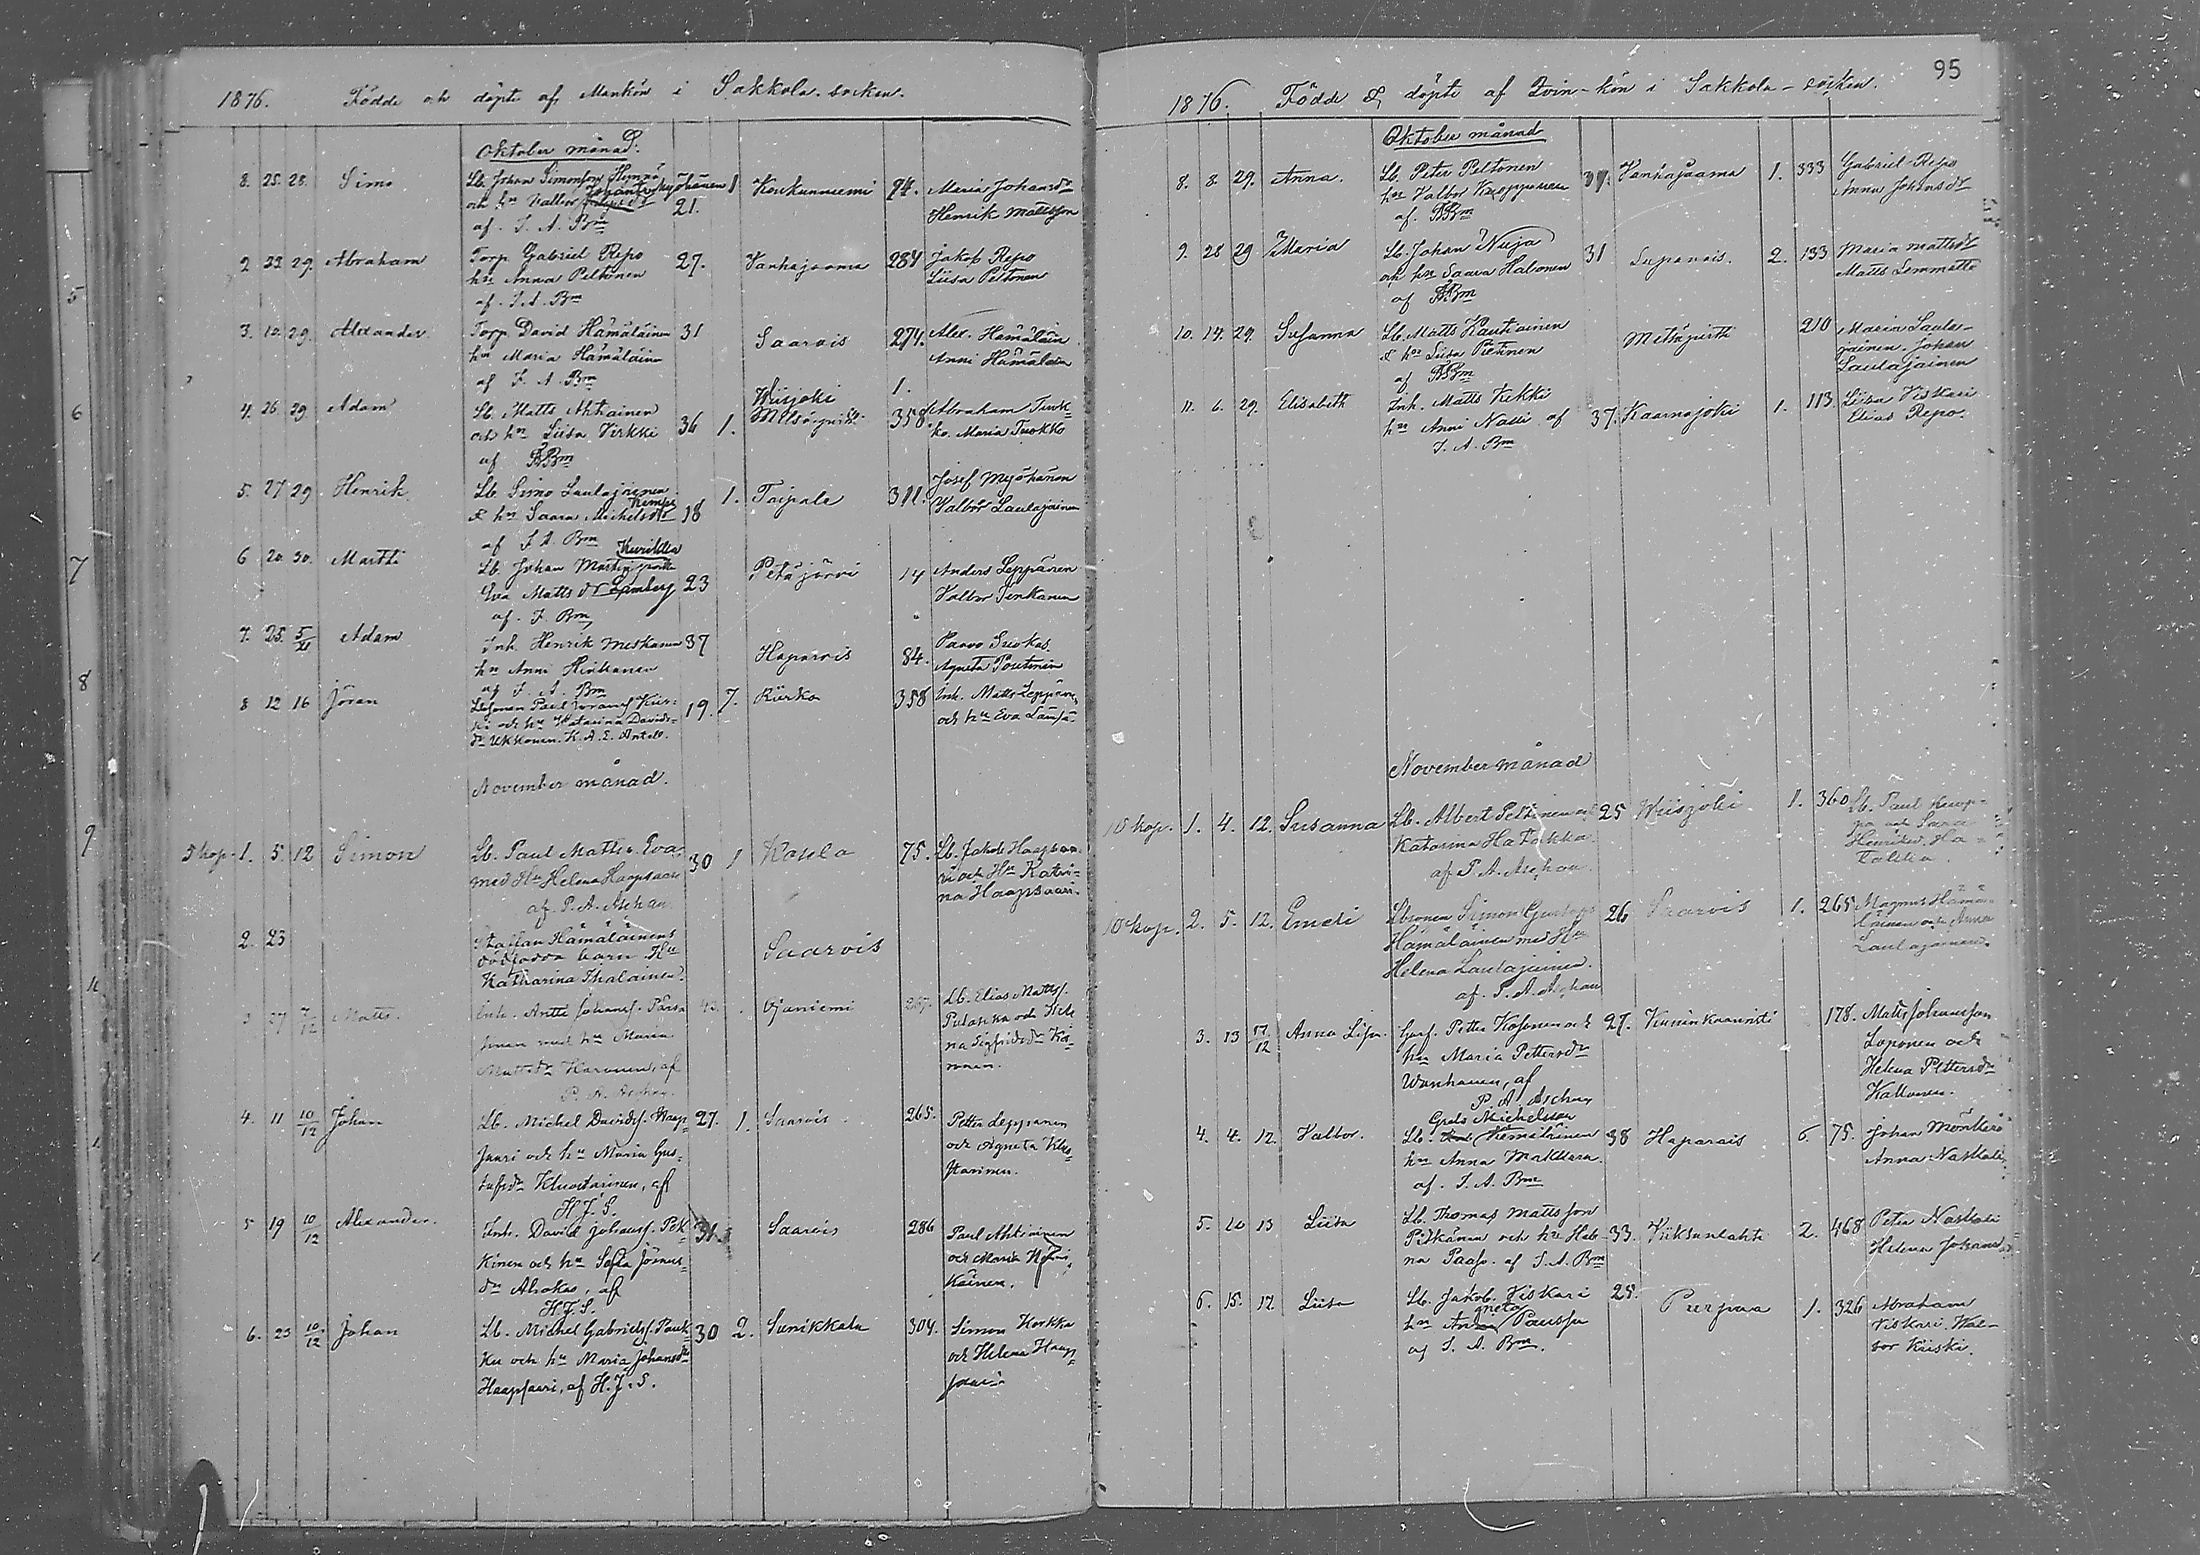 95
1876. Födde och döpte af Mankön i Sakkola socken.
Oktober månad.
8. 25. 28. Simo
Lb. Johan Simonson
och hn Valbor
af. I. A. Bm
21.
1
Koukunniemi
94.
Maria Johansdr
Henrik Mattsson
2 23 29. Abraham
Torp. Gabriel Repo
hn Anna Peltonen
af. I. A. Bm
27.
Vanhajaama
284
Jakob Repo
Liisa Peltonen
3. 10. 29. Alexander
Torp. David Hämäläinen
hn Maria Hämäläin
af I. A. Bm
31
Saarois
274.
Alex. Hämäläin
Anni Hämäläin
4. 26 29 Adam
Lb. Matts Ahtiainen
och hn Liisa Virkki
af Bm
36 1.
Wiisjoki
1.
358
Abraham Tuok-
ko. Maria Tuokko
5. 27 29. Henrik
Lb. Simo Laulajainen
& hn Saara Michelsdr
af I. A. Bm
18
1. Taipale
311.
Josef Myöhänen
Valbor Laulajainen
6 20. 30. Martti
Lb. Johan
Eva Matts dr
af. I. Bm
23
Petäjärvi
14
Anders Leppänen
Valbor Tenkanen
7. 25. 5/11 Adam
Inh. Henrik Meskanen
hn Anni Hinkanen
af I. A. Bm
37
Haparois
84.
Paavo Suokas
Agneta Poutonen
8 12 16 Jöran
Lbsonen Paul Jöransf Kur-
ki och hn Katarina Davids-
dr Ukkonen. K. A. E. Antell.
19. 7. Riiska
358
Inh. Matts Leppänen
och hn Eva
November månad.
5 kop. 1. 5 12 Simon
Lb. Paul Matts.
med Hn Helena Haapsaari
af. P. A. Aschan
30 1
Kosela
75.
Lb. Jakob Haapsaa-
ri och Hn Katri-
na Haapsaari.
2. 23
Staffan Hämäläinens
dödfödda barn Hn
Katharina Ihalainen.
Saarois
3 27 7/12 Matts.
Inh. Antti Johansf. Pärs-
sinen med hn Maria
Mattsdr Karonen, af
P. A. Aschan.
Ojaniemi
267.
Lb. Elias Mattsf.
Pulakka och Hele-
na Sigfridsdr Ko-
ronen.
4. 11 10/12 Johan
Lb. Michel Davidsf. Haap-
saari och hn Maria Gus-
tafsdr Kluostarinen, af
H. J. S.
27. 1. Saarois
265.
Petter Leppänen
och Agneta Kluo-
starinen.
5 19 10/12 Alexander.
Inh. David Johansf. Pek-
kinen och hn Sofia Jörans-
dr Ahokas, af
H. J. S.
31
Saarois
286
Paul Ahtiainen
och Maria
käinen.
6. 23 10/12 Johan
Lb. Michel Gabrielsf. Pauk-
ku och hn Maria Johansdr
Haapsaari, af H. J. S.
30 2. Sunikkala
304.
Simon Korkka
och Helena Haap-
saari.
1876. Födde & döpte af Qvin-kön i Sakkola-socken.
Oktober månad
8. 8. 29. Anna.
Lb. Peter Peltonen
hn Valbor Kaopponen
af. Bm
Vanhajaama 1. 333
Gabriel Repo
Anna Johansdr
9. 28 29 Maria
Lb. Johan Nuija
och hn Saara Halonen
af Bm
31
Lapanais. 2. 133
Maria Mattsdr
Matts Lemmetti
10. 14. 29. Susanna
Lb. Matts Kautiainen
& hn Liisa Piettinen
af Bm
Metsäpirtti
210
Maria Laula-
jainen. Johan
Laulajainen
11. 6. 29. Elisabeth
Inh. Matts Kekki
hn Anni Naski af
I. A. Bm
37. Kaarnajoki 1. 113.
Liisa Viskari
Elias Repo.
November månad
10 kop. 1. 4. 12. Susanna
Lb. Albert Peltonen och
Katarina Hatakka
af P. A. Aschan.
25 Wiisjoki 1. 360
Lb. Paul Kaop-
pa och Saara
Henriksd. Ha-
takka.
10 kop. 2. 5. 12. Emeli
Lbsonen Simon Gustafs
Hämäläinen med Hn
Helena Laulajainen.
af. P. A. Aschan
26 Saarois 1. 265
Magnus Hämä-
läinen och Anna
Laulajainen.
3. 13 17/12 Anna Lisa.
Petter Kosonen och
hn Maria Pettersdr
Wanhanen, af
P. A. Aschan
27.
178.
Matts Johansson
Loponen och
Helena Pettersdr
Kallonen.
4. 4. 12. Valbor.
Michelsson
Lb. Hemäläinen
hn Anna Makkara.
af. I. A. Bm
38 Haparais 6. 75.
Johan Mönkkö
Anna Naskali
5. 10 13 Liisa
Lb. Thomas Mattsson
Pitkänen och hn Hele-
na Paaso. af I. A. Bm
33. Viiksanlahti 2. 468
Peter Naskali
Helena Johansd
6. 15. 17. Liisa
Lb. Jakob Viskari
hn Paussu
af I. A. Bm.
25.
Purpua 1. 326
Abraham
Viskari. Wal-
bor Kiiski.
5
6
7
8
9